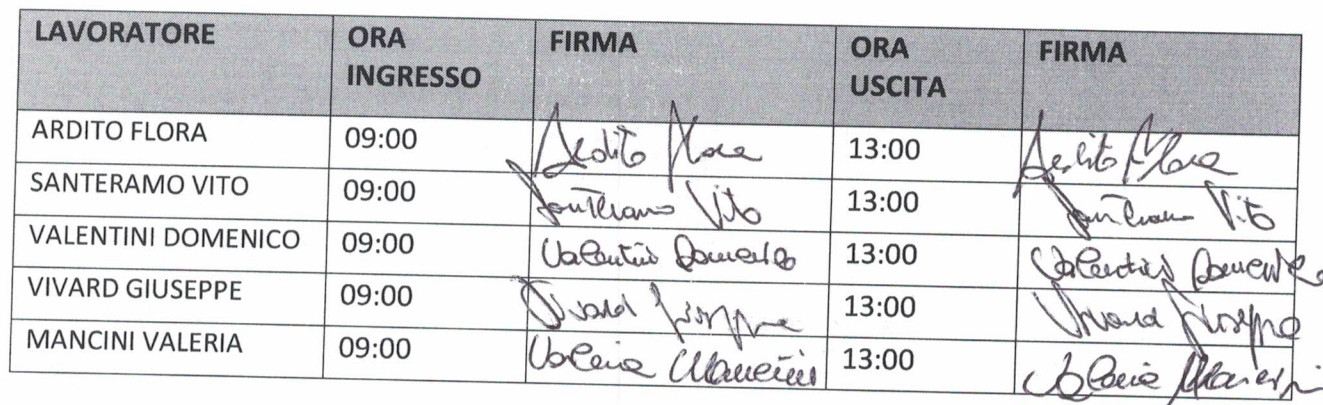 LAVORATORE ORA INGRESSO FIRMA ORA USCITA FIRMA
ARDITO FLORA 09:00 Ardito Flora 13:00 Ardito Flora
SANTERAMO VITO 09:00 Santeramo Vito 13:00 Santeramo Vito
VALENTINI DOMENICO 09:00 Valentini Domenico 13:00 Valentini Domenico
VIVARD GIUSEPPE 09:00 Vivard Giuseppe 13:00 Vivard Giuseppe
MANCINI VALERIA 09:00 Valeria Mancini 13:00 Valeria Mancini